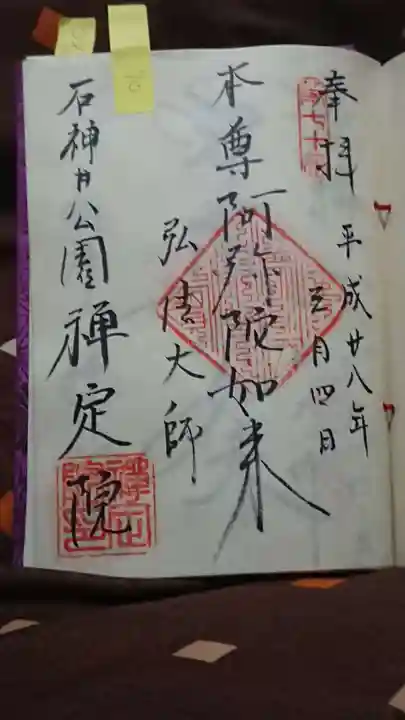 奉拝
平成廿八年
三月四日
本尊阿弥陀如来
弘法大師
石神井公園禅定院